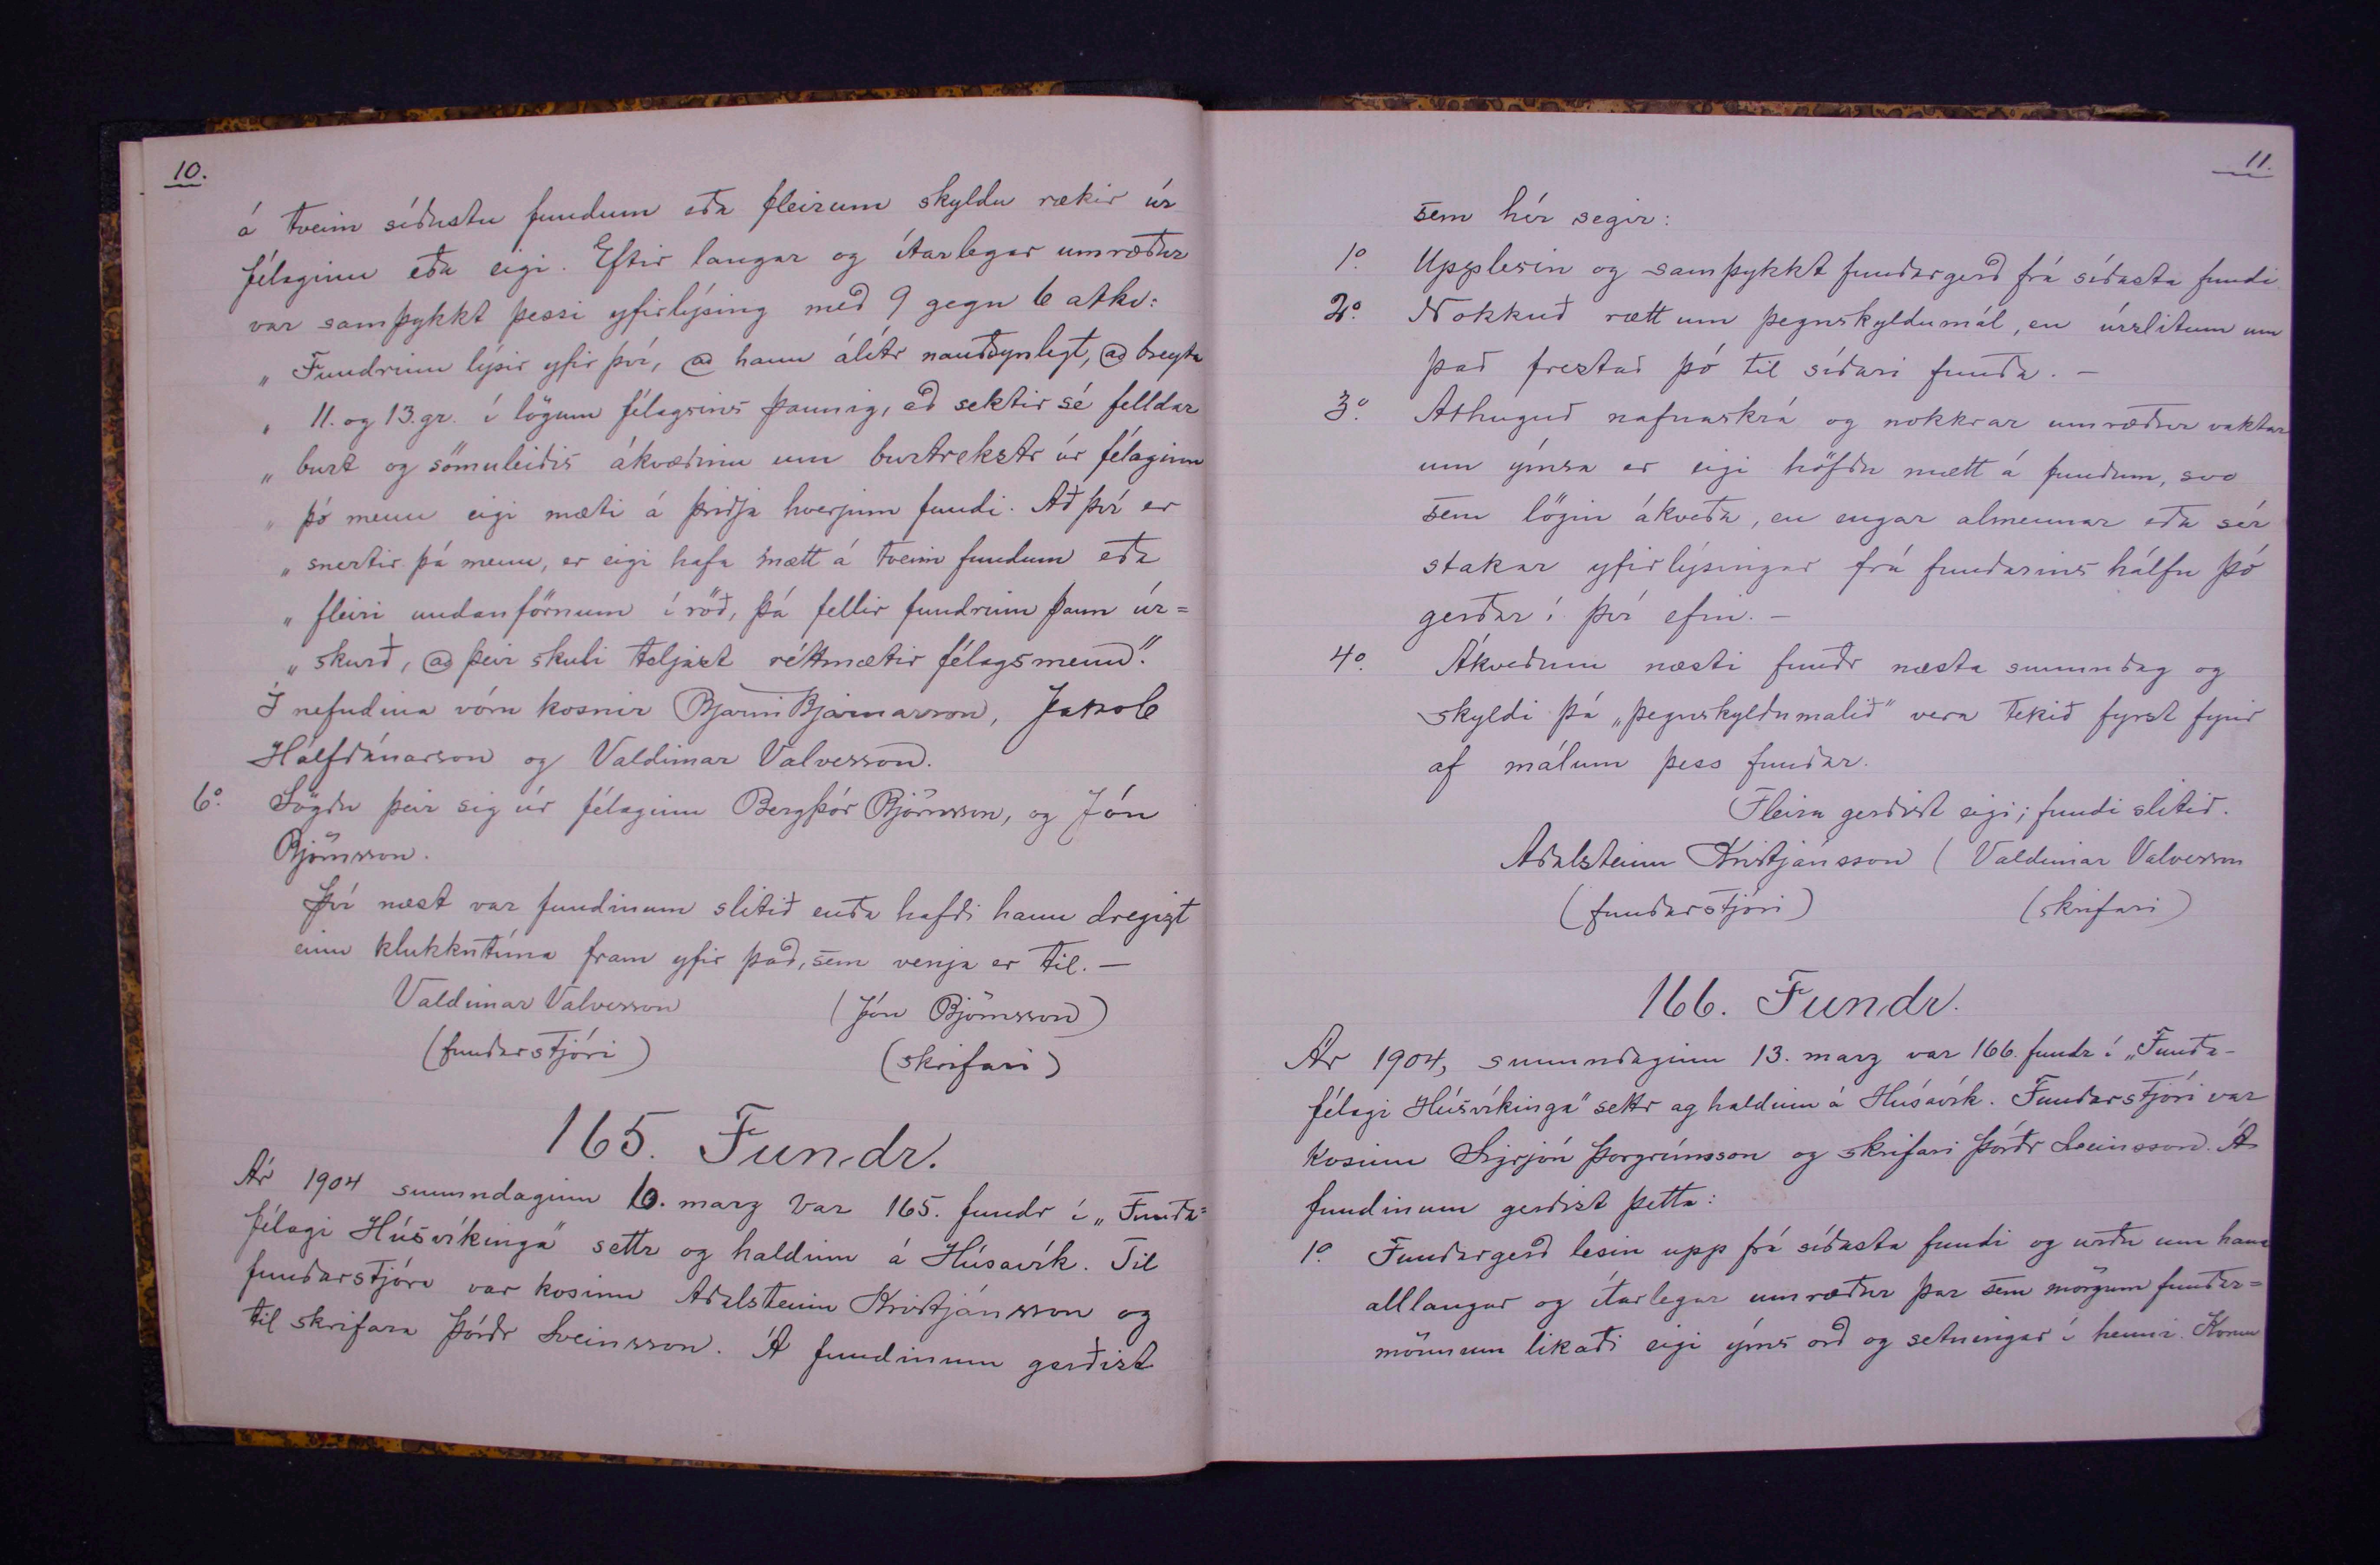 10.
á tveim síðustu fundum eða fleirum skyldu rækir úr
félaginu eða eigi. Eftir langar og ítarlegar umræður
var samþykkt þessi yfirlýsing með 9 gegn 6 atkv:
„ Fundrinn lýsir yfir því, að hann álítr nauðsynlegt, að breyta
„ 11. og 13. gr. í lögum félagsins þannig, að sektir sé felldar
„ burt og sömuleiðis ákvæðinu um burtrekstr úr félaginu
„ þó menn eigi mæti á þriðja hverjum fundi. Að því er
„ snertir þá menn, er eigi hafa mætt á tveim fundum eða
„ fleiri undanförnum í röð, þá fellir fundrinn þann úr=
„ skurð, að þeir skuli teljast réttmætir félagsmenn".
Í nefndina vóru kosnir Bjarni Bjarnarson, Jakob
Hálfdánarson og Valdimar Valvesson.
6o. Sögðu þeir sig úr félaginu Bergþór Björnsson, og Jón
Björnsson.
Því næst var fundinum slitið enda hafði hann dregizt
einn klukkutíma fram yfir það, sem venja er til. —
Valdimar Valvesson (Jón Björnsson)
(fundarstjóri) (skrifari)
165. Fundr.
Ár 1904 sunnudaginn 6. marz var 165. fundr í „Funda=
félagi Húsvíkinga" settr og haldinn á Húsavík. Til
fundarstjóra var kosinn Aðalsteinn Kristjánsson og
til skrifara Þórðr Sveinsson. Á fundinum gerðist
11.
sem hér segir:
1o. Upplesin og samþykkt fundargerð frá síðasta fundi
2o. Nokkuð rætt um þegnskyldumál, en úrslitum um
það frestað þó til síðari funda. —
3o. Athuguð nafnaskrá og nokkrar umræður vaktar
um ýmsa er eigi höfðu mætt á fundum, svo
sem lögin ákveða, en engar almennar eða sér
stakar yfirlýsingar frá fundarins hálfu þó
gerðar í því efni. —
4o. Ákveðinn næsti fundr næsta sunnudag og
skyldi þá „þegnskyldumalið" vera tekið fyrst fyrir
af málum þess fundar.
Fleira gerðist eigi; fundi slitið.
Aðalsteinn Kristjánsson ( Valdimar Valvesson
(fundarstjóri) (skrifari)
166. Fundr.
Ár 1904, sunnudaginn 13. marz var 166. fundr í „Funda-
félagi Húsvíkinga" settr og haldinn á Húsavík. Fundarstjóri var
kosinn Sigrjón Þorgrímsson og skrifari Þórðr Sveinsson. Á
fundinum gerðist þetta:
1o. Fundargerð lesin upp frá síðasta fundi og urðu um hana
alllangar og ítarlegar umræður þar sem mörgum fundar=
mönnum likaði eigi ýms orð og setningar í henni. Komu